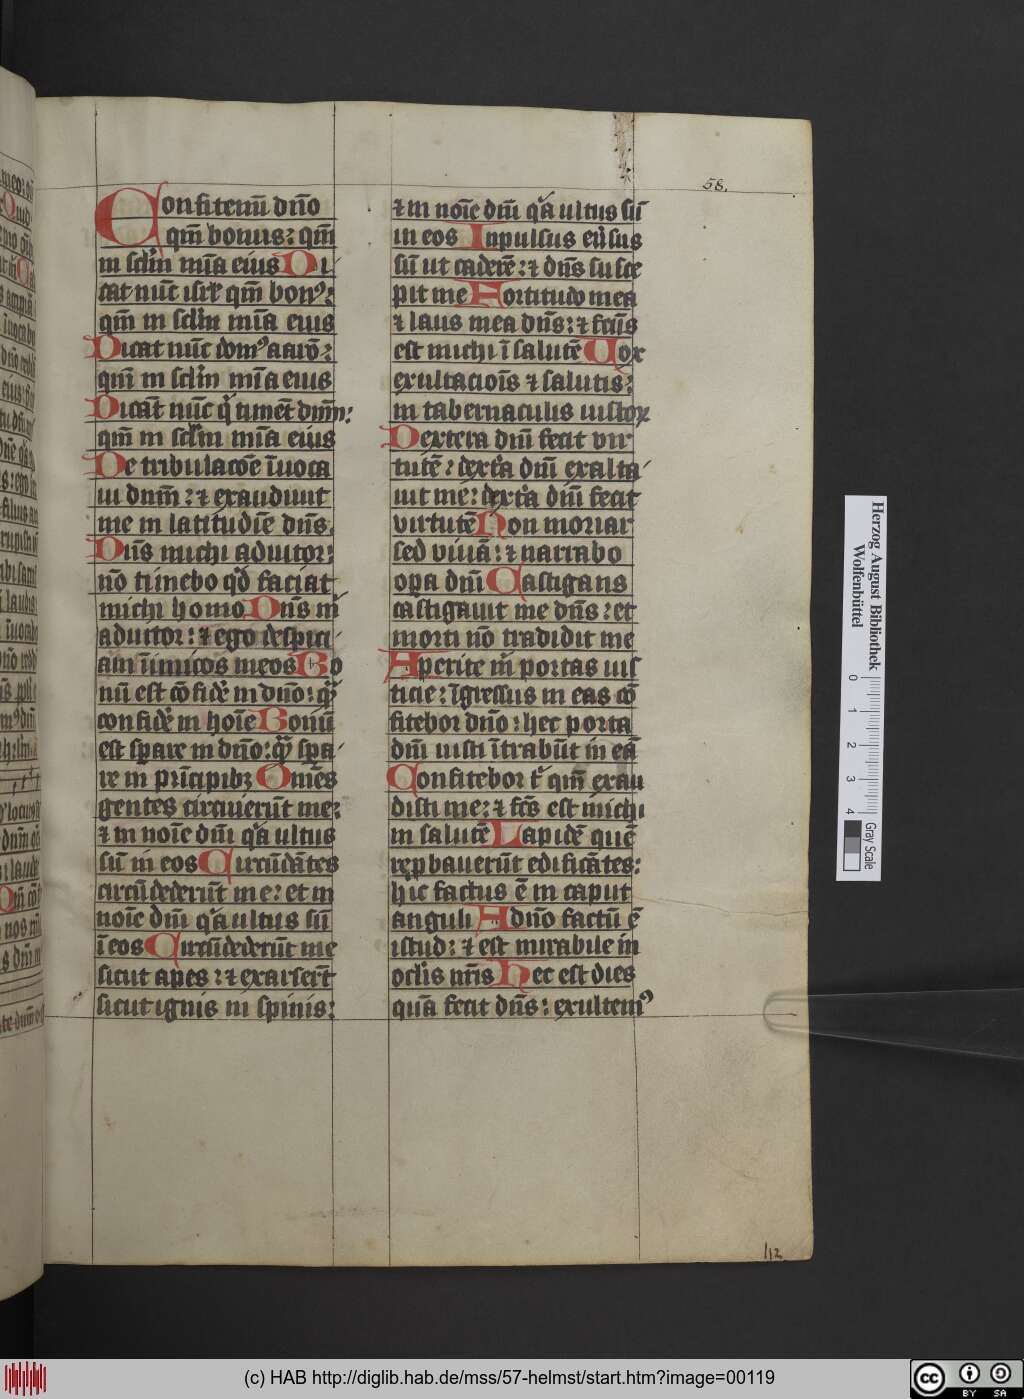 58.
Confitemĩ dño
qm̃ bonus: qm̃
in sclm̃ mĩa eius Di
cat nũc isrl̃ qm̃ bonꝰ:
qm̃ in sclm̃ mĩa eius
Dicat nũc domꝰ aarõ:
qm̃ in sclm̃ mĩa eius
Dicãt nũc q̃ timẽt dñm:
qm̃ in sclm̃ mĩa eius
De tribulacõe ĩuoca
ui dnm̃: ⁊ exaudiuit
me in latitudĩe dñs.
Dñs michi adiutor:
nõ timebo qd̃ faciat
michi homo Dñs m̃
adiutor: ⁊ ego despici
am ĩimicos meos Bo
nũ est cõfidẽ in dño: q̃
confidẽ in hoĩe Bonũ
est spare in dño: q̃ spa
re in prĩcipibꝫ Omẽs
gentes circuierũt me:
⁊ in noĩe dñi q̃a ultus
sũ in eos Circũdãtes
circũdederũt me: et in
noĩe dñi q̃a ultus sũ
ĩ eos Circũdederũt me
sicut apes: ⁊ exarsert̃
sicut ignis in spinis:
⁊ in noĩe dñi q̃a ultus sũ
in eos Inpulsus eũsus
sũ ut caderẽ: ⁊ dñs susce
pit me Fortitudo mea
⁊ laus mea dñs: ⁊ fcũs
est michi ĩ salutẽ Vox
exultacioĩs ⁊ salutis:
in tabernaculis iustoꝝ
Dextera dñi fecit vir
tutẽ: dext̃a dñi exalta
uit me: dext̃a dñi fecit
virtutẽ Non moriar
sed viuã: ⁊ narrabo
opa dñi Castigans
castigauit me dñs: et
morti nõ tradidit me
Aperite m̃ portas ius
ticie: ĩgressus in eas cõ
fitebor dño: hec porta
dñi iusti ĩtrabũt in eã
Confitebor t̃ qm̃ exau
disti me: ⁊ fc̃s est michi
in salutẽ Lapidẽ quẽ
repbauerũt edificãtes:
hic factus ẽ in caput
anguli A dño factũ ẽ
istud: ⁊ est mirabile in
oclis nr̃is Hec est dies
quã fecit dñs: exultemꝰ
112
Herzog August Bibliothek
Wolfenbüttel
0 1 2 3 4
Gray Scale
(c) HAB http://diglib.hab.de/mss/57-helmst/start.htm?image=00119
cc BY SA